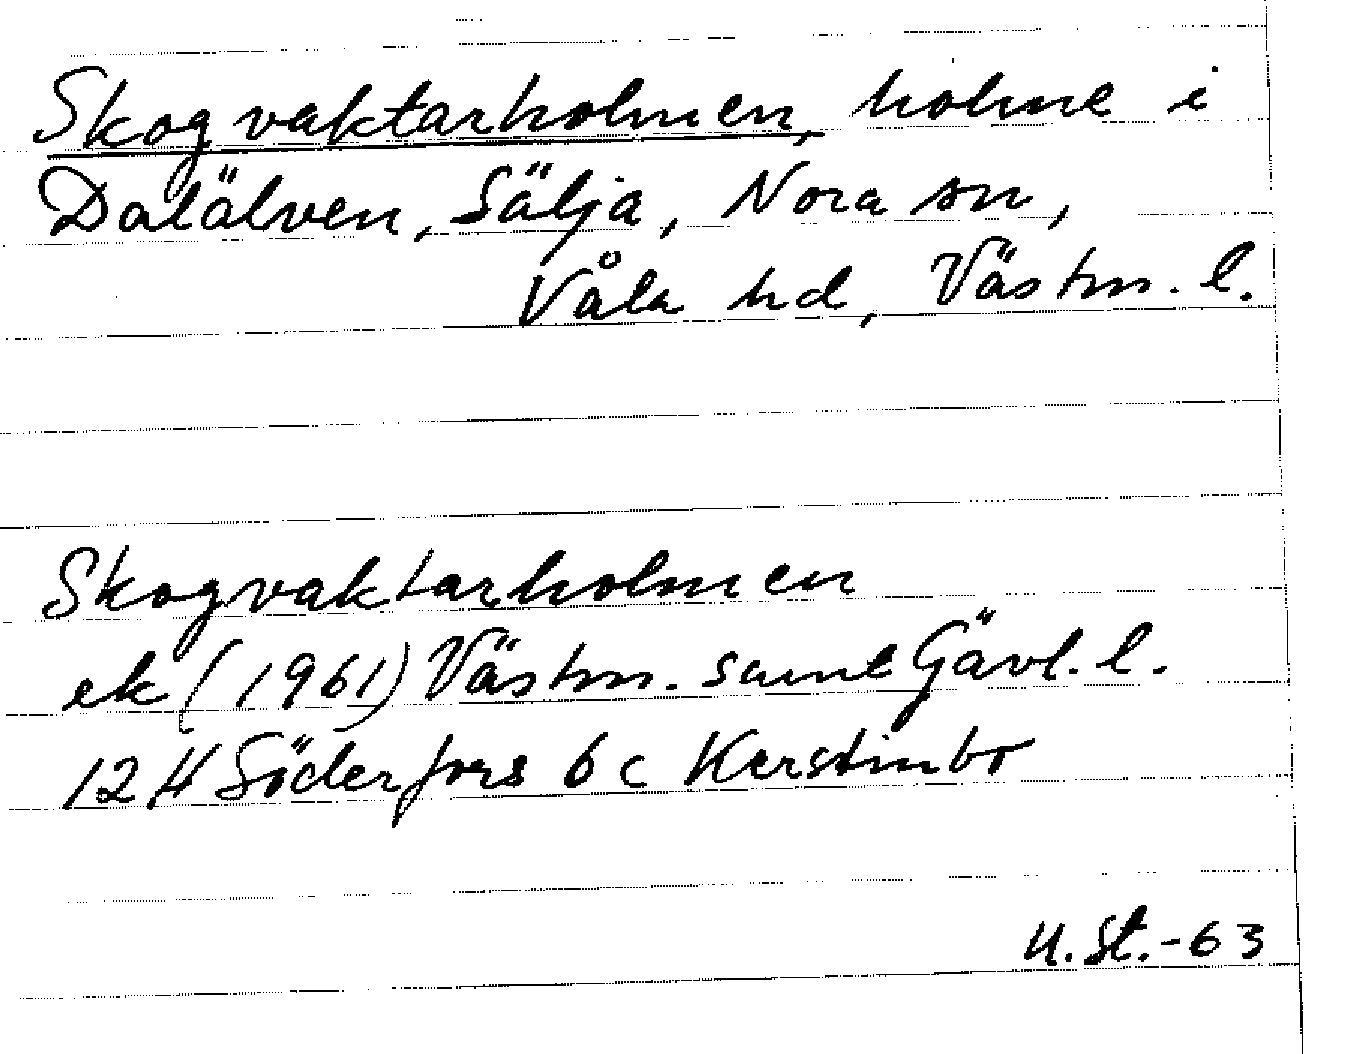 Skogvaktarholmen, holme i
Dalälven, Sälja, Nora sn,
Våla hd, Västm. l.
Skogvaktarholmen
ek (1961) Västm. samt Gävl. l.
12 H Söderfors 6 c Kerstinbo
U.St.-63